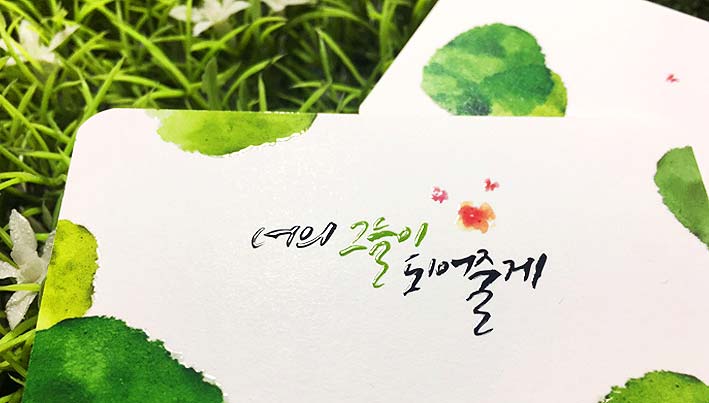 너의 그늘이
되어줄게